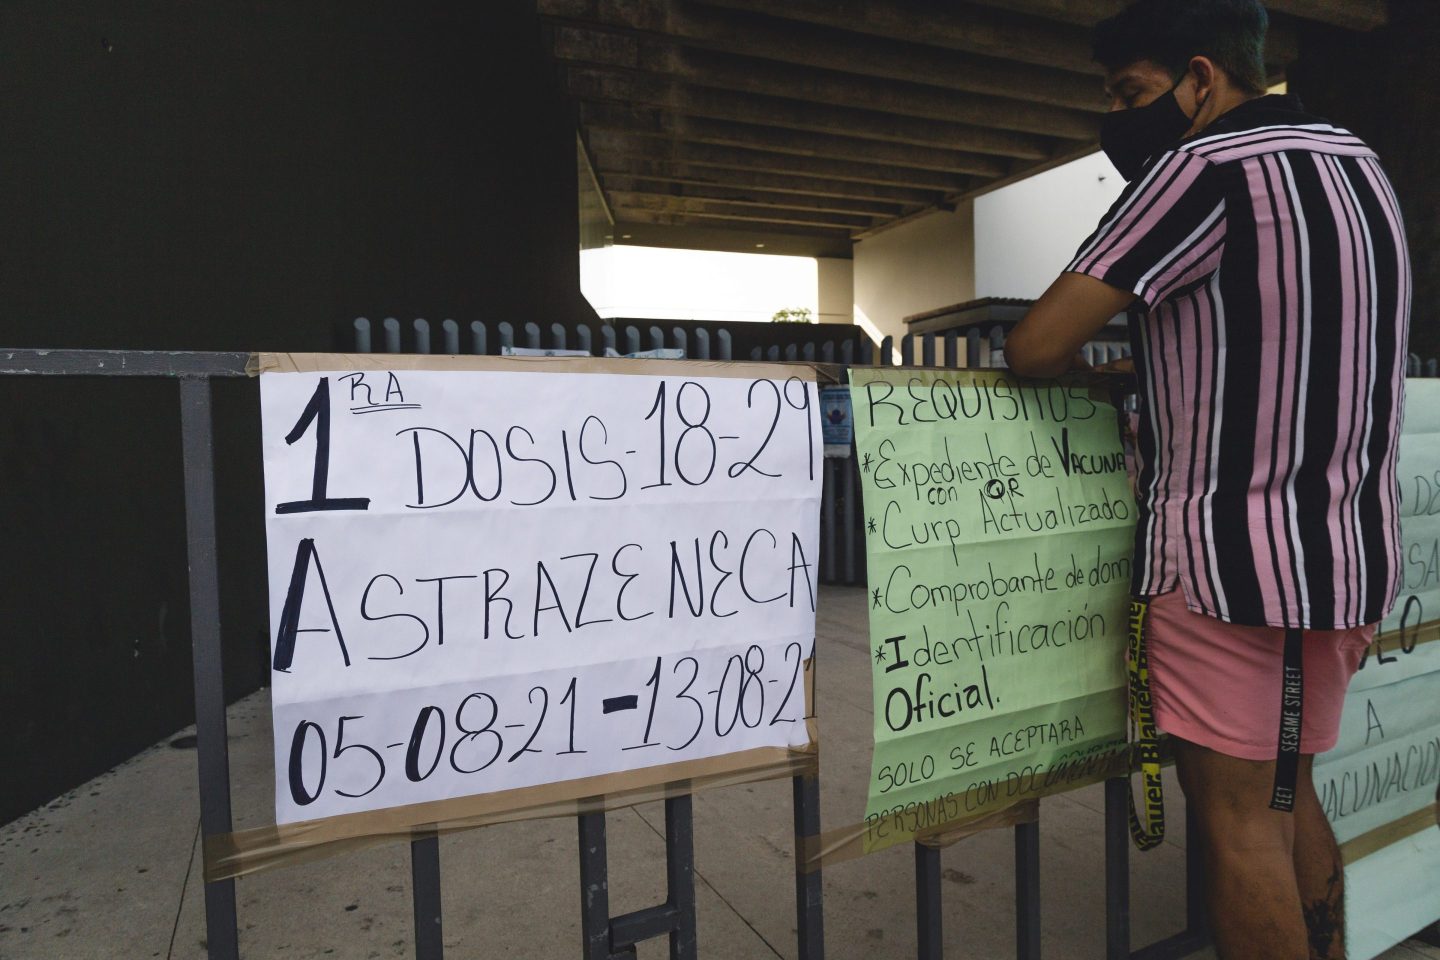 1RA DOSIS-18-29
ASTRAZENECA
05-08-21-13-08-21
REQUISITOS
*Expediente de VACUNA
con QR
*Curp Actualizado
*Comprobante de dom
*Identificación
Oficial.
SOLO SE ACEPTARA
PERSONAS CON DOCUMENT
A
VACUNACION
Blauer
SESAME STREET